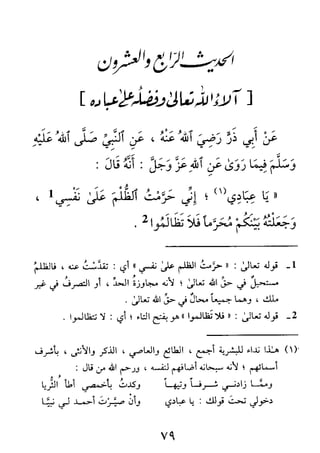 الحديث الرابع والعشرون
[ آلاء الله تعالى وفضله على عباده ]
عَنْ أَبِي ذَرٍّ رَضِيَ اللهُ عَنْهُ ، عَنِ النَّبِيِّ صَلَّى اللهُ عَلَيْهِ
وَسَلَّمَ فِيمَا رَوَى عَنِ اللهِ عَزَّ وَجَلَّ : أَنَّهُ قَالَ :
« يَا عِبَادِي(١) ؛ إِنِّي حَرَّمْتُ الظُّلْمَ عَلَىٰ نَفْسِي1 ،
وَجَعَلْتُهُ بَيْنَكُمْ مُحَرَّماً فَلَا تَظَالَمُوا2 .
1 - قوله تعالى : « حرَّمتُ الظلم على نفسي » أي : تقدَّستُ عنه ، فالظلمُ
مستحيلٌ في حقِّ الله تعالى ؛ لأنه مجاوزةُ الحدِّ ، أو التصرفُ في غير
ملك ، وهما جميعاً محالٌ في حقِّ الله تعالى .
2 - قوله تعالى : « فلا تظالموا » هو بفتح التاء ؛ أي : لا تتظالموا .
(١) هذا نداء للبشرية أجمع ، الطائع والعاصي ، الذكر والأنثى ، بأشرف
أسمائهم ؛ لأنه سبحانه أضافهم لنفسه ، ورحم الله من قال :
وممَّا زادني شرفاً وتيهاً وكدتُ بأخمصي أطأ الثُّريا
دخولي تحتَ قولك : يا عبادي وأنْ صيَّرتَ أحمدَ لي نبيَّا
٧٩